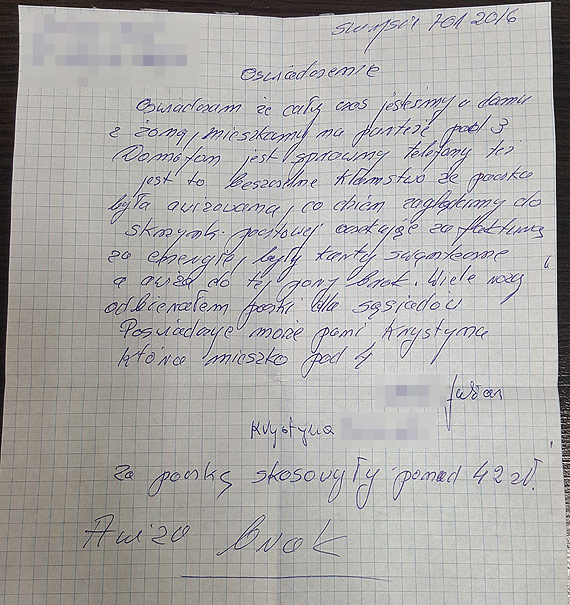 7 01 2016
Oświadczenie
Oświadczam że cały czas jesteśmy w domu
z żoną, mieszkamy na parterze pod 3
Domofon jest sprawny telefony też
jest to bezczelne kłamstwo że paczka
była awizowana, co dzień zaglądamy do
skrzynki pocztowej czekając za fakturą
za energię, były kartki świąteczne
a awiza do tej pory brak. Wiele razy
odbierałem paczki dla sąsiadów
Poświadczyć może pani Krystyna
która mieszka pod 4
Julian
Krystyna
za paczkę skasowały ponad 42 zł.
Awizo brak